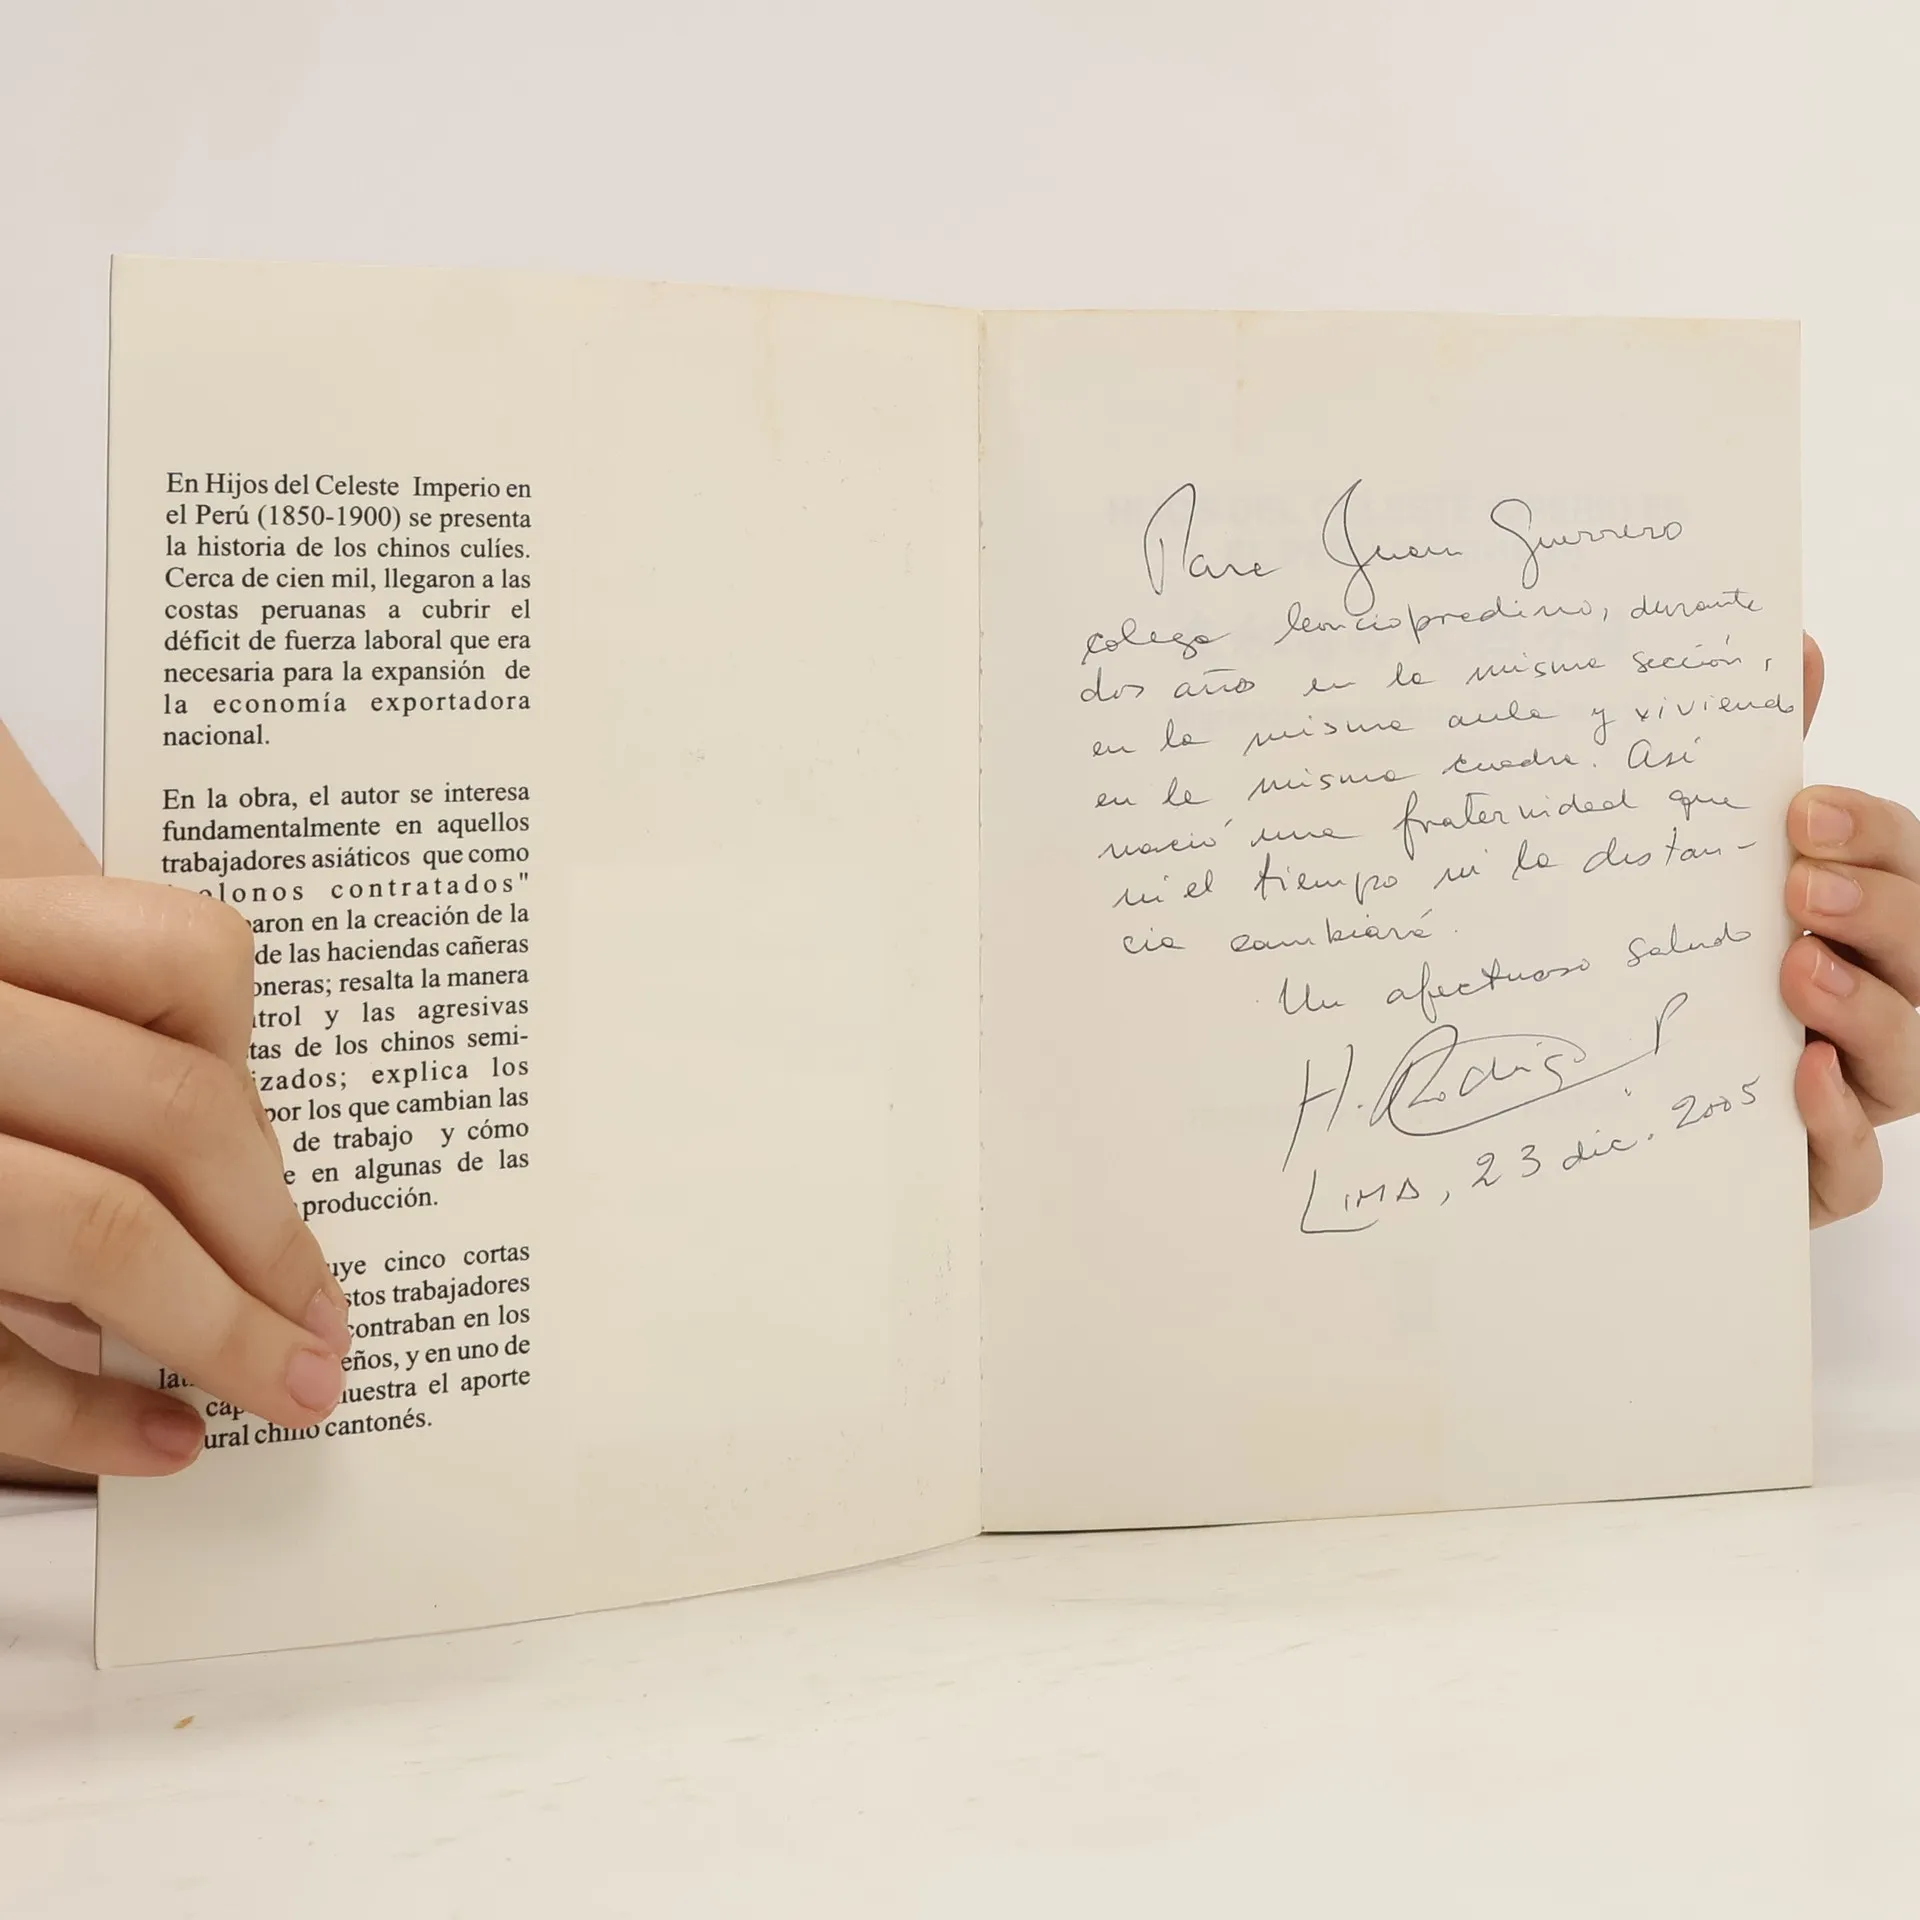 En Hijos del Celeste Imperio en
el Perú (1850-1900) se presenta
la historia de los chinos culíes.
Cerca de cien mil, llegaron a las
costas peruanas a cubrir el
déficit de fuerza laboral que era
necesaria para la expansión de
la economía exportadora
nacional.
En la obra, el autor se interesa
fundamentalmente en aquellos
trabajadores asiáticos que como
olonos contratados"
aron en la creación de la
de las haciendas cañeras
oneras; resalta la manera
trol y las agresivas
tas de los chinos semi-
izados; explica los
por los que cambian las
de trabajo y cómo
e en algunas de las
producción.
uye cinco cortas
stos trabajadores
contraban en los
eños, y en uno de
uestra el aporte
ural chino cantonés.
Para Juan Guerrero
colega leonciopradino, durante
dos años en la misma sección,
en la misma aula y viviendo
en la misma cuadra. Así
nació una fraternidad que
ni el tiempo ni la distan-
cia cambiará.
Un afectuoso saludo
H. Rodríg P
LIMA, 23 dic. 2005